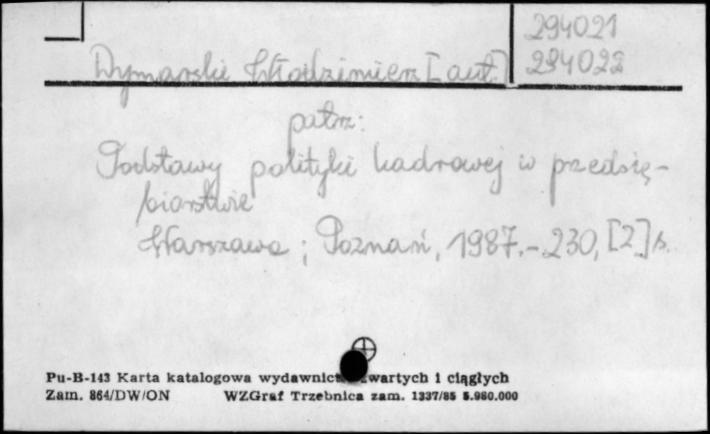 294021
Dymarski Włodzimierz [aut.] 294022
patrz:
Podstawy polityki kadrowej w przedsię-
biorstwie
Warszawa ; Poznań, 1987. - 230, [2] s.
Pu-B-143 Karta katalogowa wydawnict zwartych i ciągłych
Zam. 864/DW/ON WZGraf Trzebnica zam. 1337/85 5.980.000